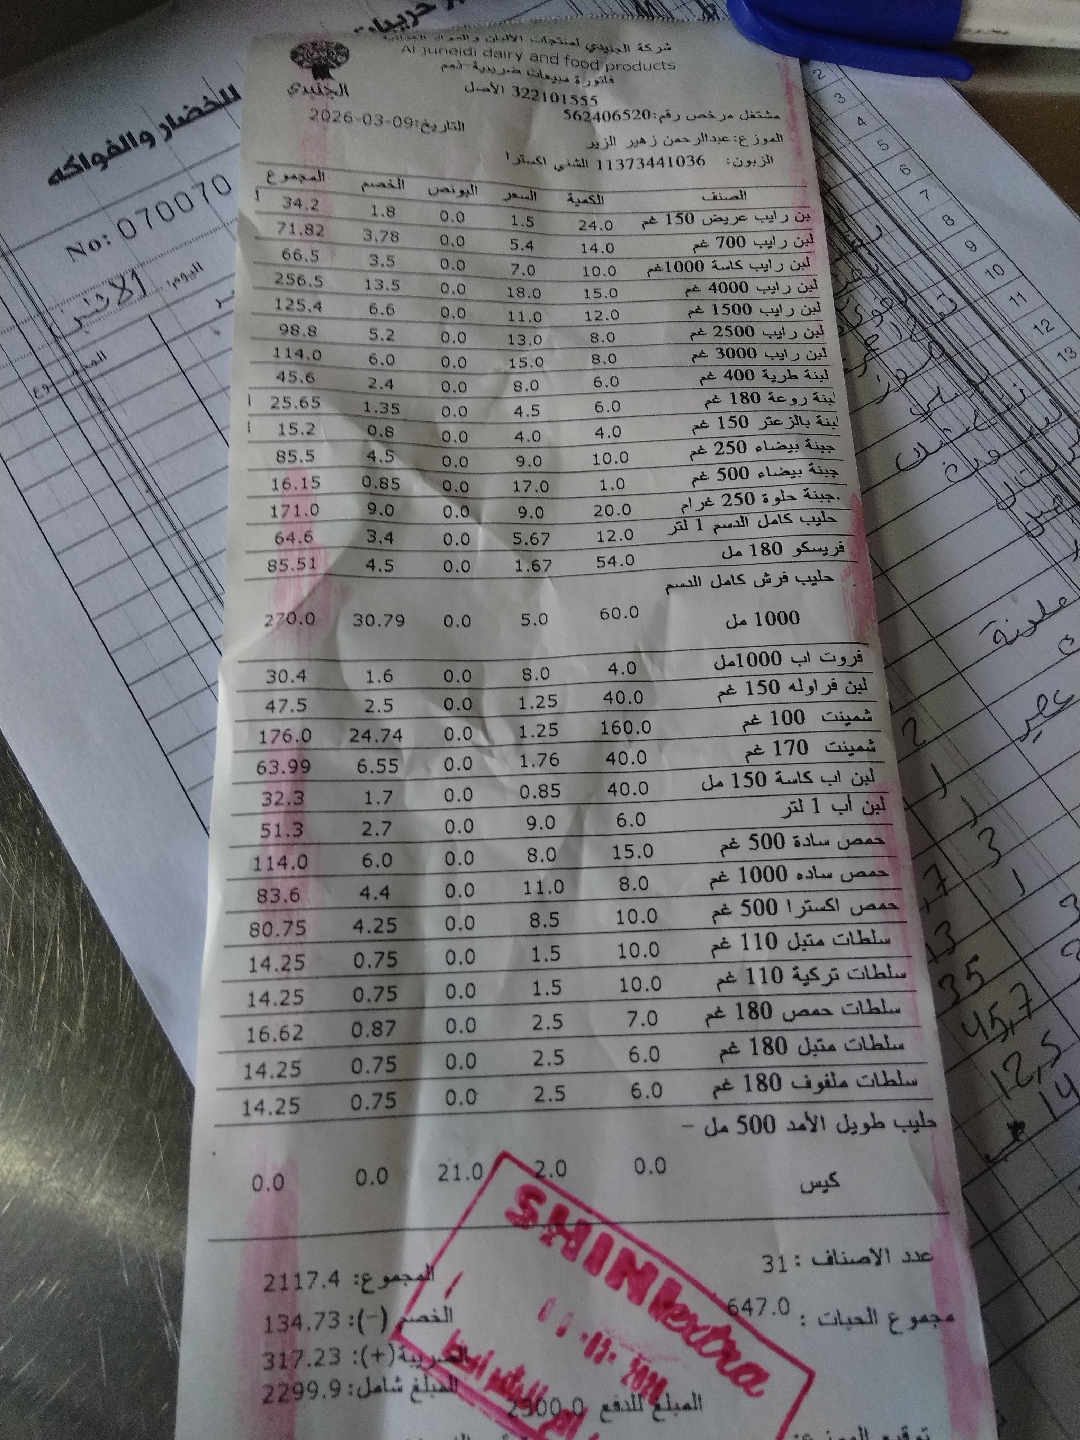 شركة الجنيدي لمنتجات الألبان والمواد الغذائية
Al Junaidi dairy and food products
الجنيدي
فاتورة مبيعات ضريبية-نعم
322101555 الأصل
مشتغل مرخص رقم:562406520
التاريخ:2026-03-09
الموزع:عبدالرحمن زهير الزير
الزبون: 11373441036 الشني اكسترا
الصنف الكمية السعر البونص الخصم المجموع
لبن رايب عريض 150 غم 24.0 1.5 0.0 1.8 34.2
لبن رايب 700 غم 14.0 5.4 0.0 3.78 71.82
لبن رايب كاسة 1000غم 10.0 7.0 0.0 3.5 66.5
لبن رايب 4000 غم 15.0 18.0 0.0 13.5 256.5
لبن رايب 1500 غم 12.0 11.0 0.0 6.6 125.4
لبن رايب 2500 غم 8.0 13.0 0.0 5.2 98.8
لبن رايب 3000 غم 8.0 15.0 0.0 6.0 114.0
لبنة طرية 400 غم 6.0 8.0 0.0 2.4 45.6
لبنة روعة 180 غم 6.0 4.5 0.0 1.35 25.65
لبنة بالزعتر 150 غم 4.0 4.0 0.0 0.8 15.2
جبنة بيضاء 250 غم 10.0 9.0 0.0 4.5 85.5
جبنة بيضاء 500 غم 1.0 17.0 0.0 0.85 16.15
جبنة حلوة 250 غرام. 20.0 9.0 0.0 9.0 171.0
حليب كامل الدسم 1 لتر 12.0 5.67 0.0 3.4 64.6
فريسكو 180 مل 54.0 1.67 0.0 4.5 85.51
حليب فرش كامل الدسم
1000 مل 60.0 5.0 0.0 30.79 270.0
فروت اب 1000مل 4.0 8.0 0.0 1.6 30.4
لبن فراوله 150 غم 40.0 1.25 0.0 2.5 47.5
شمينت 100 غم 160.0 1.25 0.0 24.74 176.0
شمينت 170 غم 40.0 1.76 0.0 6.55 63.99
لبن اب كاسة 150 مل 40.0 0.85 0.0 1.7 32.3
لبن أب 1 لتر 6.0 9.0 0.0 2.7 51.3
حمص سادة 500 غم 15.0 8.0 0.0 6.0 114.0
حمص ساده 1000 غم 8.0 11.0 0.0 4.4 83.6
حمص اكسترا 500 غم 10.0 8.5 0.0 4.25 80.75
سلطات متبل 110 غم 10.0 1.5 0.0 0.75 14.25
سلطات تركية 110 غم 10.0 1.5 0.0 0.75 14.25
سلطات حمص 180 غم 7.0 2.5 0.0 0.87 16.62
سلطات متبل 180 غم 6.0 2.5 0.0 0.75 14.25
سلطات ملفوف 180 غم 6.0 2.5 0.0 0.75 14.25
حليب طويل الأمد 500 مل -
كيس 0.0 2.0 21.0 0.0 0.0
عدد الاصناف : 31
مجموع الحبات : 647.0
المجموع: 2117.4
الخصم (-): 134.73
الضريبة(+): 317.23
المبلغ شامل: 2299.9
المبلغ للدفع 2300.0
SHINI extra
للخضار والفواكه
No: 070070
اليوم: الاثنين
المجموع
2
3
4
5
6
7
8
9
10
11
12
13
35
45,7
12,5
14